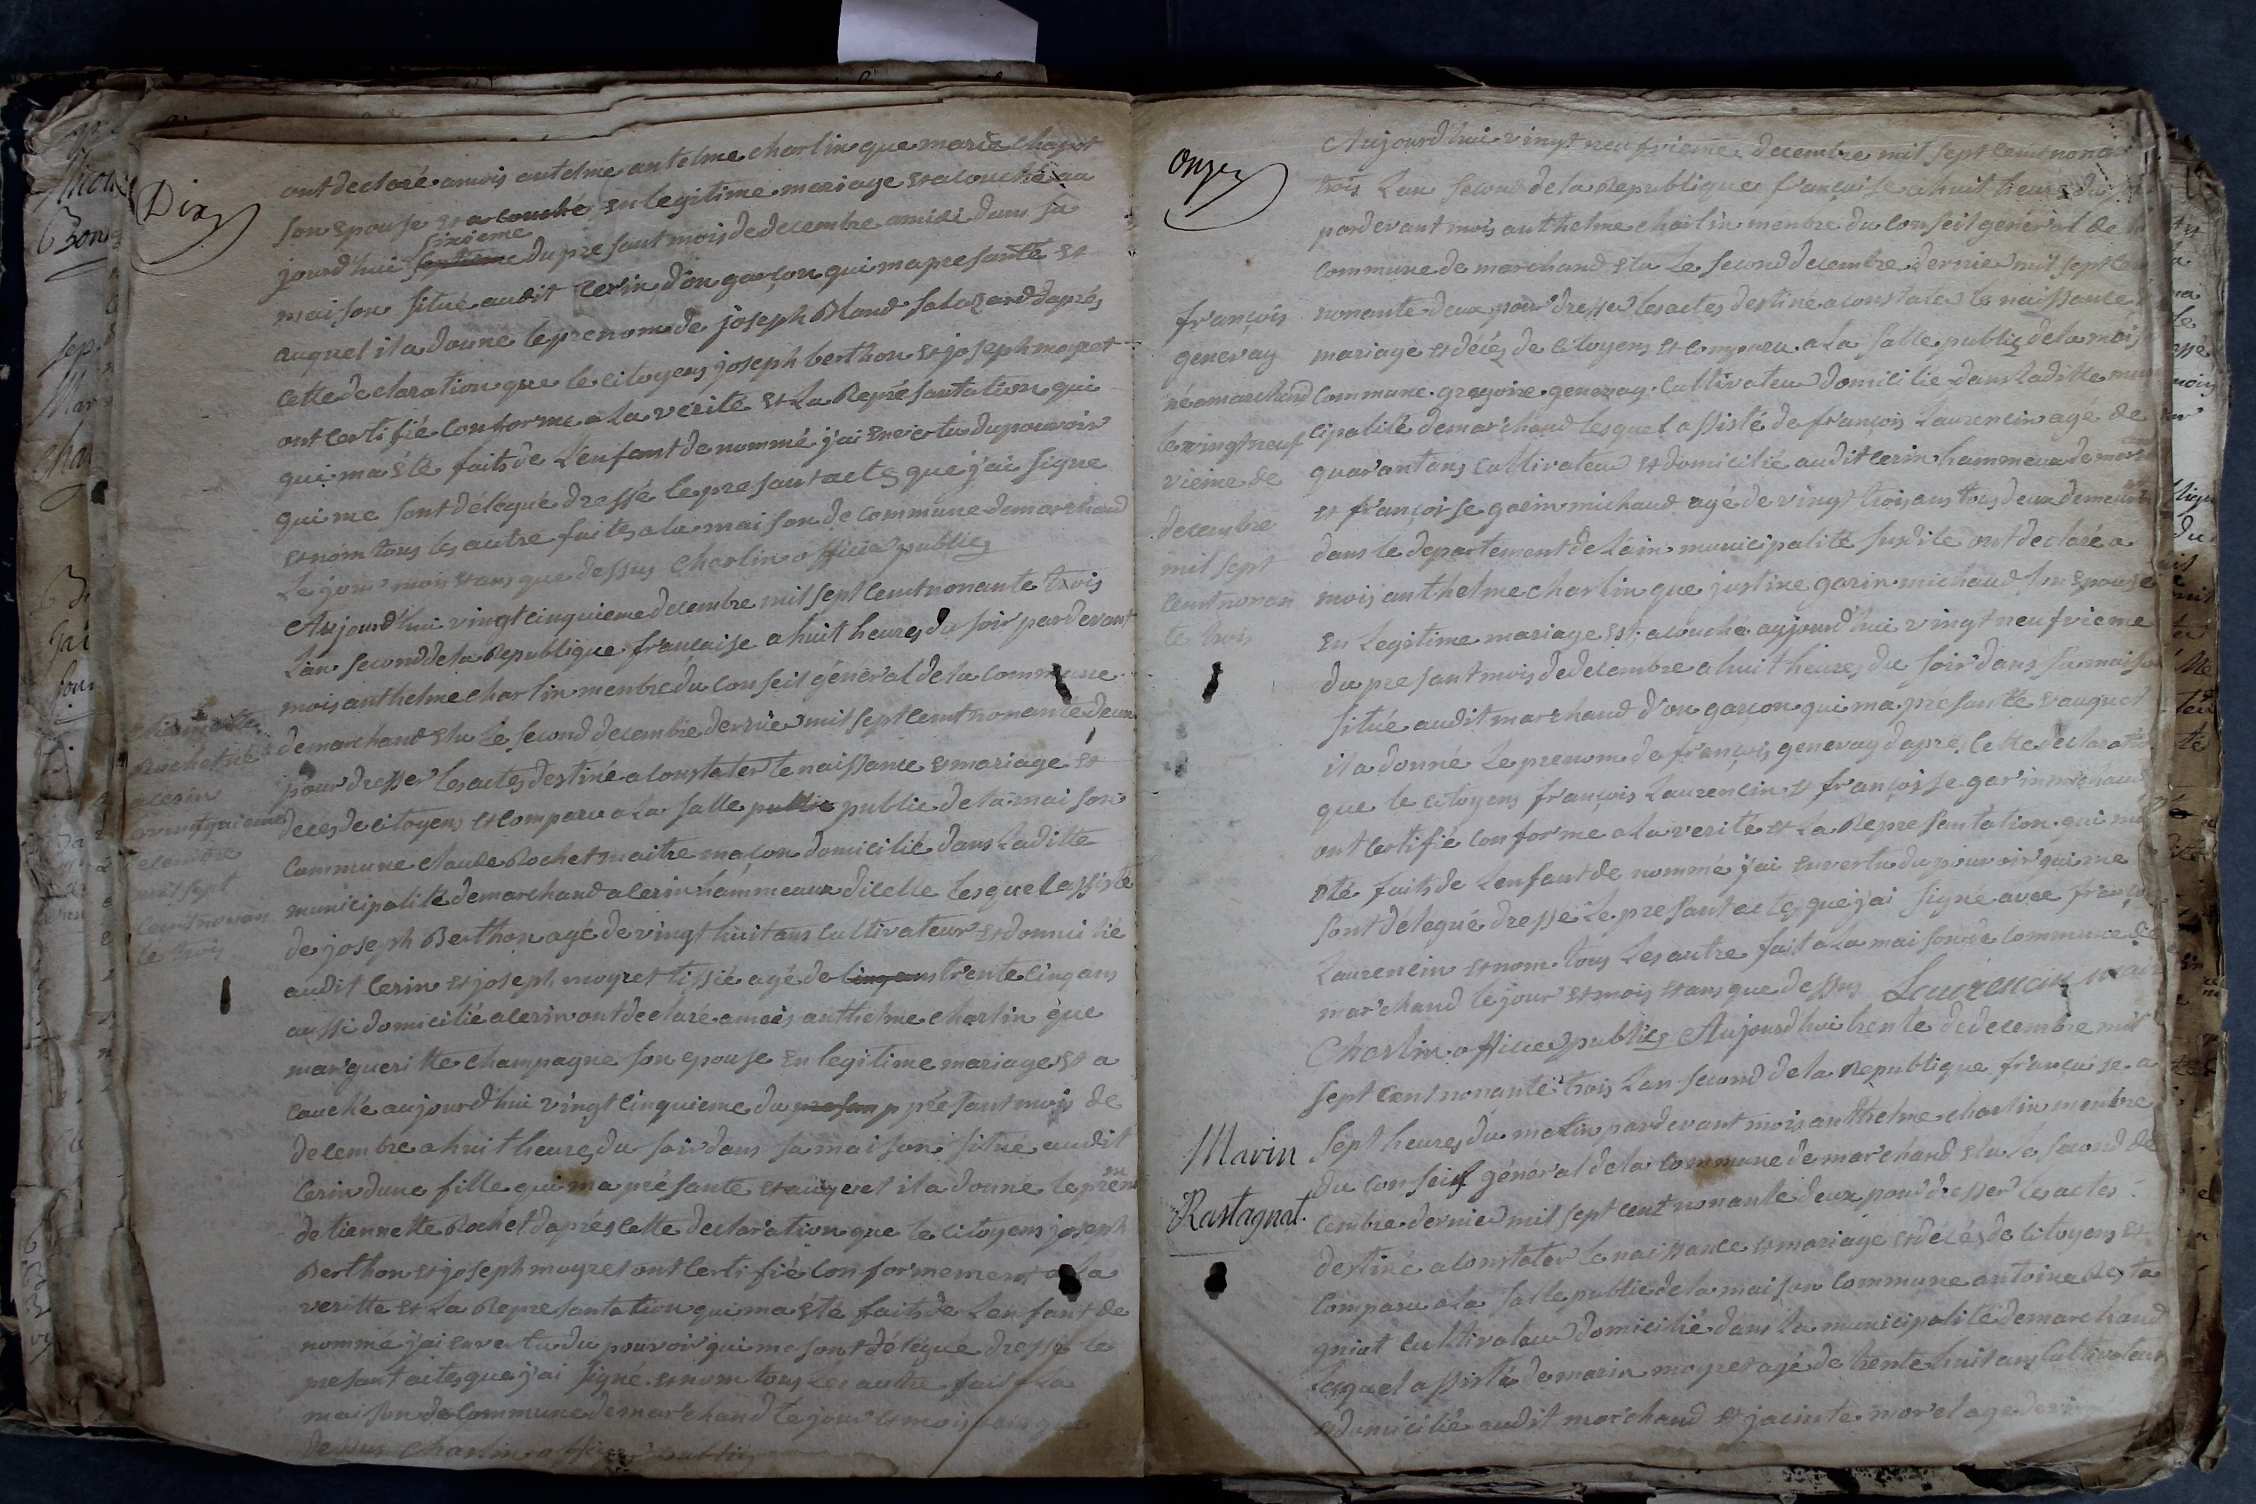 Dix
ont declaré amois antelme antelme charlin que maria chapot
son epouse et a couché en legitime mariage et a couché au
jourd'hui sixieme septieme du presant mois de decembre amidi dans sa
maison situé audit cerin d'on garçon qui ma presanté et
auquel il a donné le prenom de joseph Bland Salazard d'aprés
cette declaration que le citoyens joseph berthon et joseph moyret
ont certifié conforme a la verité et la Représantation qui
qui ma été faits de l'enfant de nommé j'ai en vertu du pouvoir
qui me sont délegué dressé le presant actes que j'ai signe
et nom tous les autre faites a la maison de commune de marchand
Le jour mois et ans que dessus Charlin officié publics
Aujourd'hui vingt cinquieme decembre mil sept cent nonante trois
L'an second de la Republique francaise a huit heures du soir pardevant
mois anthelme charlin menbre du conseil général de la commune
de marchand elu le second decembre dernié mil sept cent nonante deux
pour dresser les actes destiné a constater le naissance et mariage et
deces de citoyens et comparu a la salle public public de la maison
Commune claude Rochet maitre maçon domicilié dans la ditte
municipalité de marchand a cerin hammeaux dicelle lesquel assisté
de joseph Berthon agé de vingt huit ans cultivateur et domicilié
audit Cerin et joseph moyret tissié agé de cinq ans trente cinq ans
aussi domicilié a cerin ont declaré amois anthelme charlin que
margueritte champagne son epouse en legitime mariage et a
couché aujourd'hui vingt cinquieme du presan p présant mois de
decembre a huit heures du soir dans sa maison situé audit
Cerin dune fille qui ma présanté et auquel il a donné le prenom
de tiennette Rochet d'aprés cette declaration que le citoyens joseph
Berthon et joseph moyret ont certifié conformement a la
veritte et la Represantation qui ma été faits de l'enfant de
nommé j'ai en vertu du pouvoir qui me sont délégué dressé le
presant actes que j'ai signé et nom tous les autre fait a la
maison de Commune de marchand le jour et mois et ans que
dessus Charlin officier publics
Rochet né
a cerin
decembre
mil sept
cent nonan
te trois
onze
Aujourd'hui vingt neufvieme decembre mil sept cent nonan
trois L'an second de la Republique française a huit heures du
pardevant mois anthelme charlin menbre du conseil général de la
commune de marchand elu le second decembre dernié mil sept cen
nonante deux pour dresser les actes destiné a constater le naissance
mariage et décés de citoyens et comparu a la salle public de la mais
Commune gregoire genevay cultivateur domicilié dans la ditte muni
cipalité de marchand lesquel assisté de françois Laurencin agé de
quarant ans cultivateur et domicilié audit cerin hammeux de mar
et françoise garin michaud agé de vingt trois ans tous deux demeurant
dans le departement de L'ain municipalité susdite ont declaré a
mois anthelme charlin que justine garin michaud son epouse
en legitime mariage est acouché aujourd'hui vingt neufvieme
du presant mois de decembre a huit heures du soir dans sa maison
situé audit marchand d'on garcon qui ma présanté et auquel
il a donné le prenom de françois genevay d'aprés cette declaratio
que le citoyens françois Laurencin et françoise garin michaud
ont certifié conforme a la verité et la Represantation qui ma
été faits de l'enfant de nommé j'ai en vertu du pouvoir qui me
sont délegué dressé le presant actes que j'ai signé avec françois
Laurencin et nom tous les autre fait a la maison de commune de
marchand le jour et mois et ans que dessus Laurencin mair
Charlin officier publics Aujourd'hui trente de decembre mil
sept cent nonante trois L'an second de la Republique française a
sept heures du matin pardevant mois anthelme charlin menbre
du conseil général de la commune de marchand elu le second de
cembre dernié mil sept cent nonante deux pour dresser les actes
destiné a constater le naissance et mariage et décés de citoyens et
comparu a la salle public de la maison commune antoine Resta
gniat cultivateur domicilié dans la municipalité de marchand
lesquel assisté de marin moyret agé de trente huit ans cultivateur
et domicilié audit marchand et jacinte morel agé de
françois
genevay
né a marchand
le vingt neuf
vieme de
decembre
mil sept
cent nonan
te trois
Marin
Rastagnat.